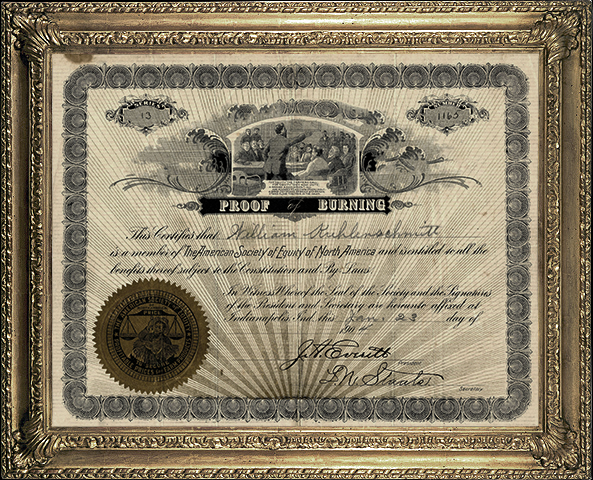 SERIES NUMBER
13 1165
PROOF of BURNING
This Certifies that William Kuhlenschmitt
is a member of The American Society of Equity of North America and is entitled to all the
benefits thereof subject to the Constitution and By Laws.
In Witness Whereof the Seal of the Society and the Signatures
of the President and Secretary are hereunto affixed at
Indianapolis, Ind. this Jan. 23 day of
1904
J.A. Everitt
President
Secretary